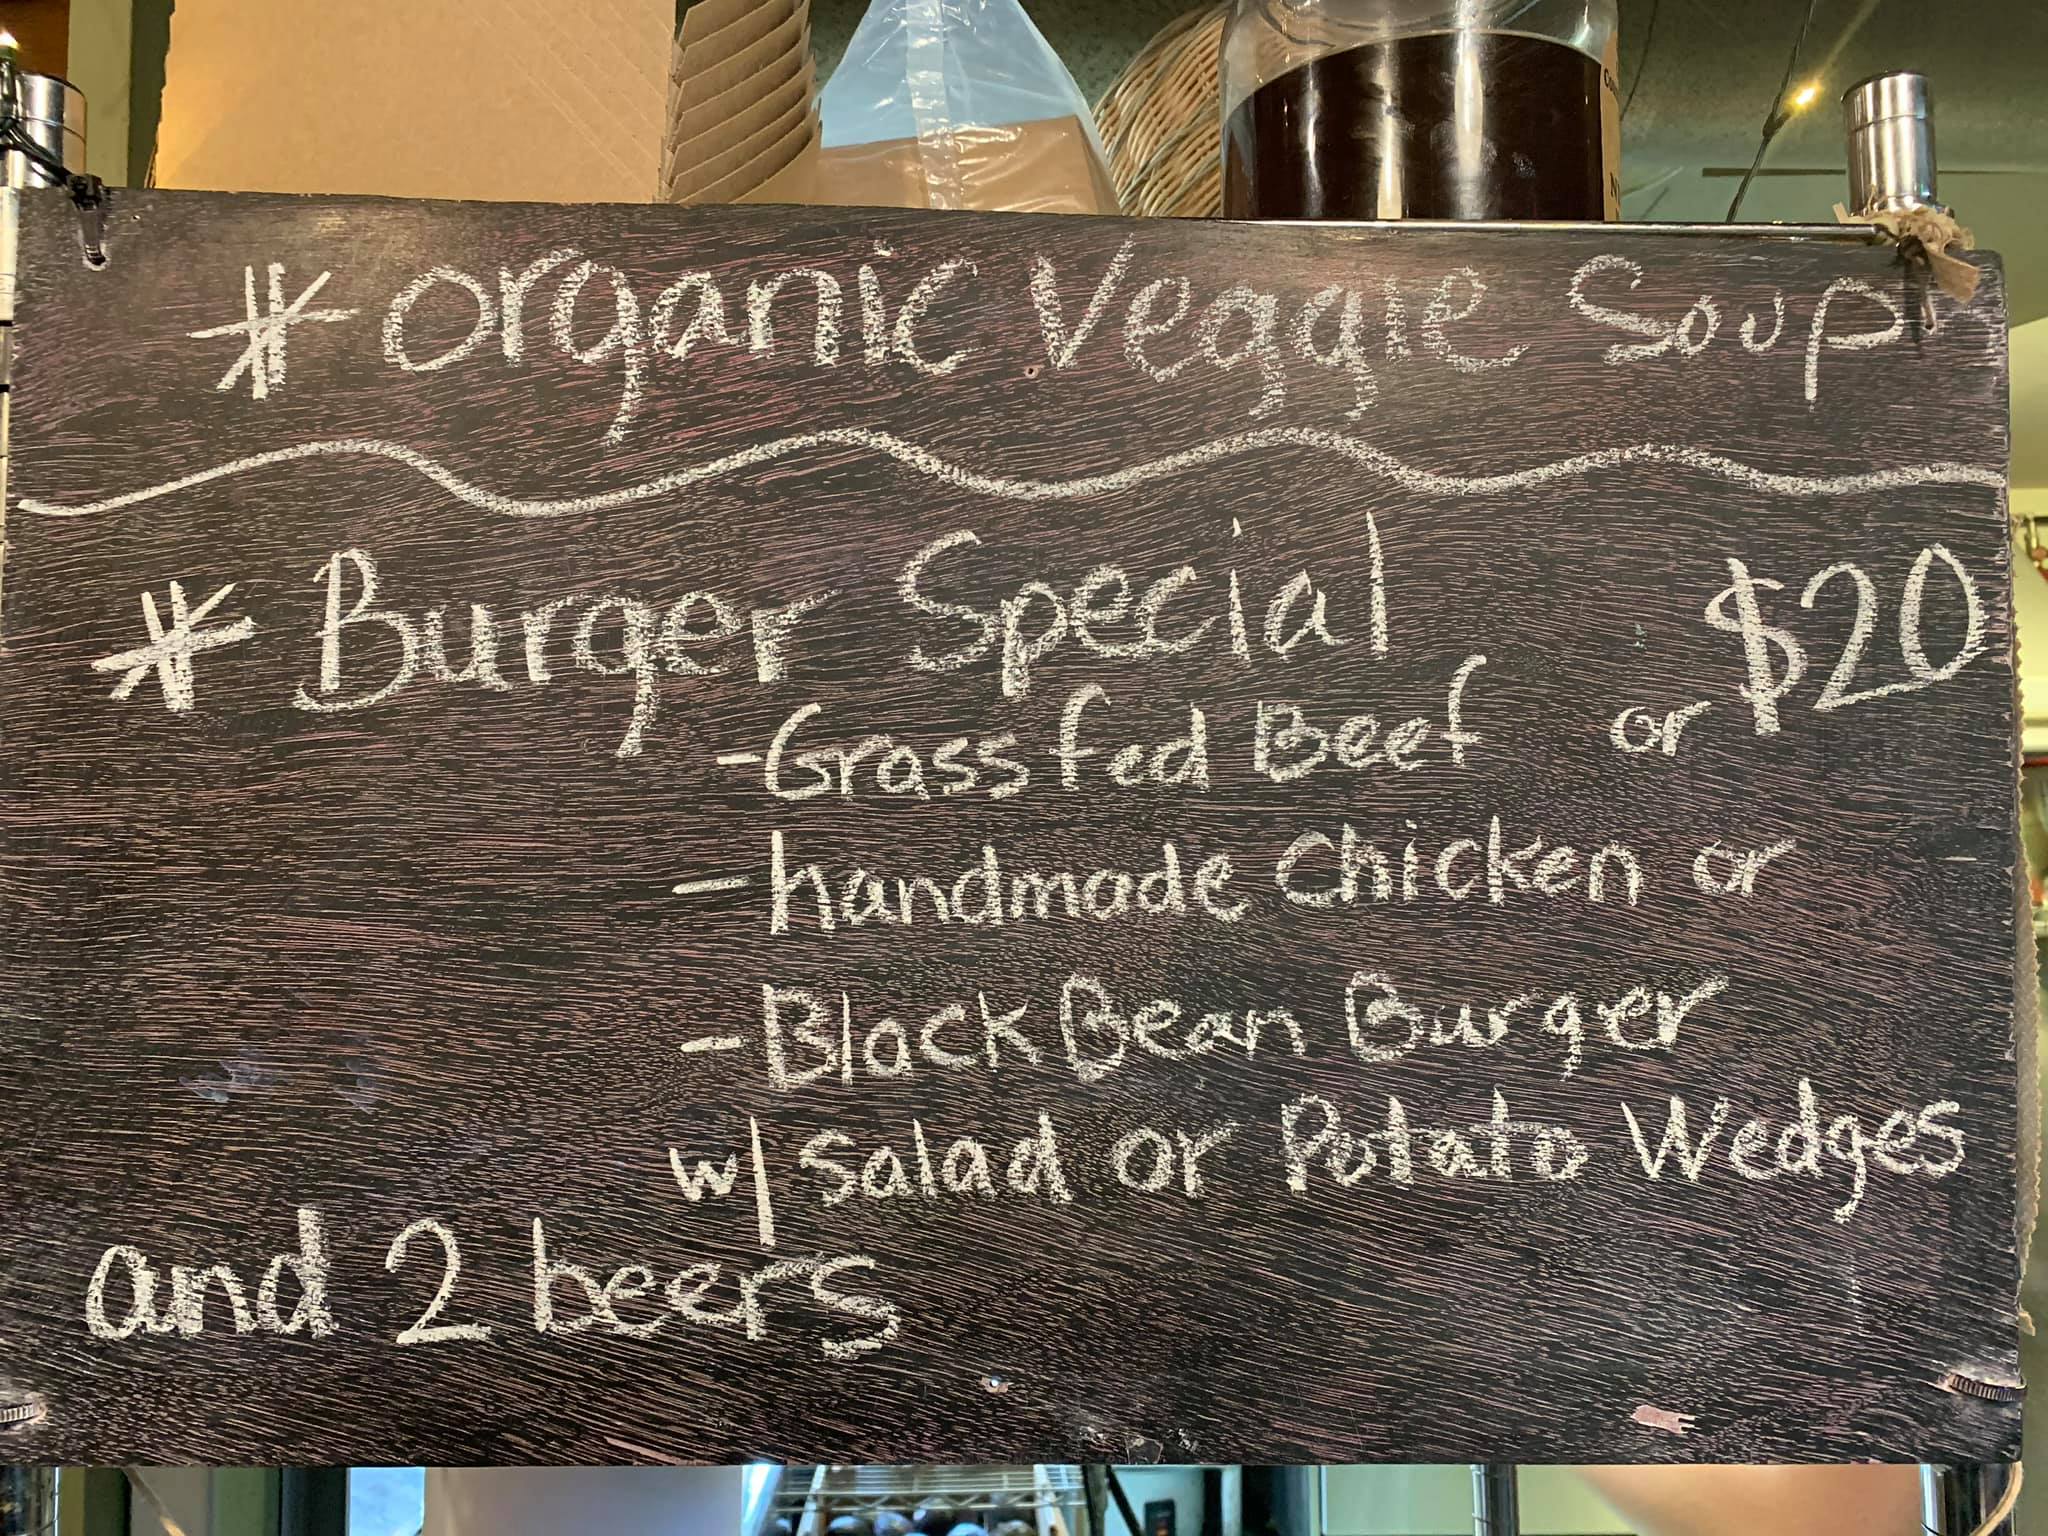 * Organic Veggie Soup
* Burger Special $20
- Grass fed Beef or
- handmade Chicken or
- Black Bean Burger
w/ Salad or Potato Wedges
and 2 beers